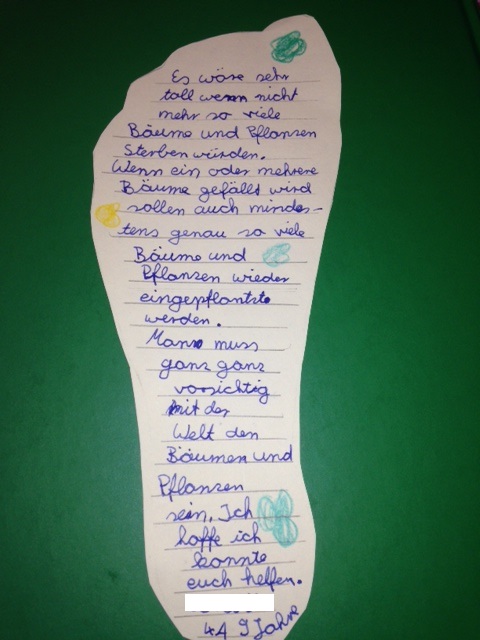 Es wäre sehr
toll wenn nicht
mehr so viele
Bäume und Pflanzen
Sterben würden.
Wenn ein oder mehrere
Bäume gefällt wird
sollen auch mindes-
tens genau so viele
Bäume und
Pflanzen wieder
eingepflantzte
werden.
Mann muss
ganz ganz
vorsichtig
mit der
Welt den
Bäumen und
Pflanzen
sein. Ich
hoffe ich
konnte
euch helfen.
4A 9 Jahre